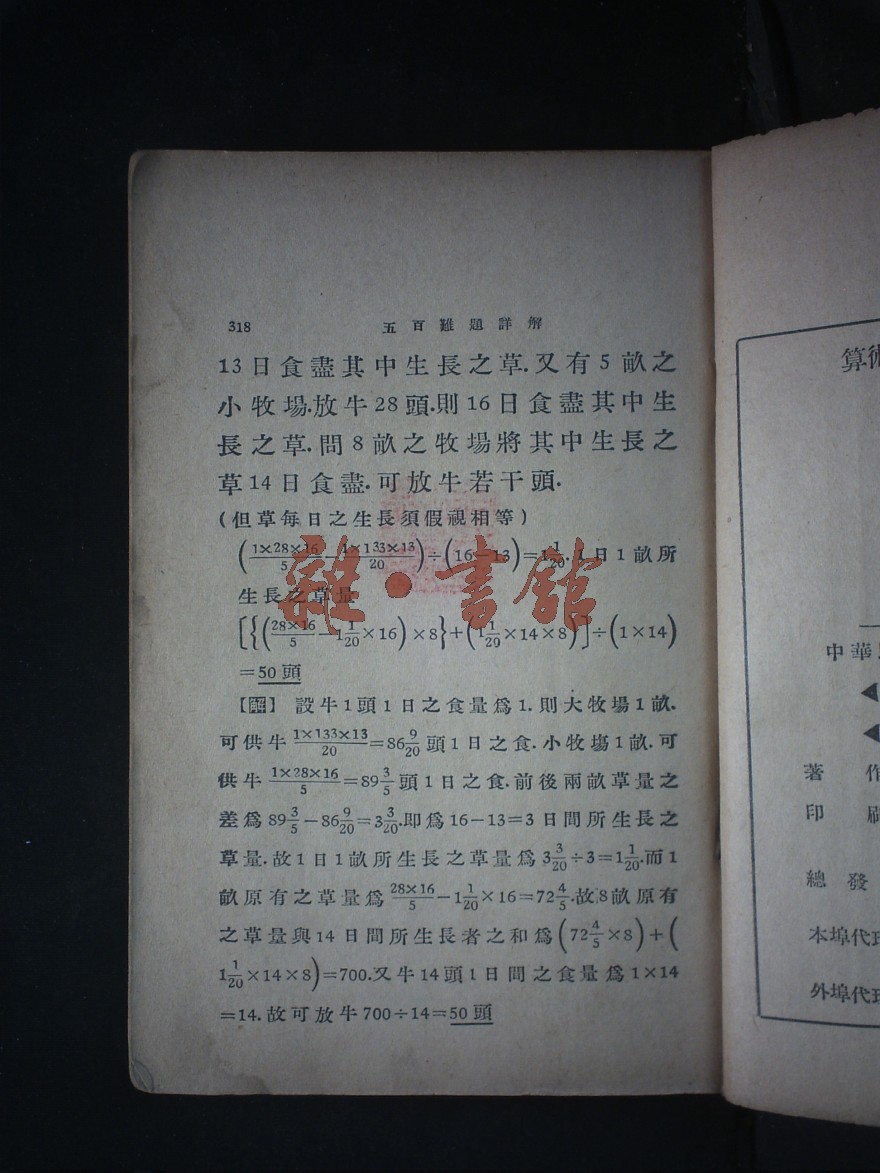 318 五百難題詳解
13日食盡其中生長之草.又有5畝之
小牧場.放牛28頭.則16日食盡其中生
長之草.問8畝之牧場將其中生長之
草14日食盡.可放牛若干頭.
(但草每日之生長須假視相等)
(1×28×16/5 − 1×133×13/20)÷(16−13)=1 1/20. 1日1畝所
生長之草量
[{(28×16/5 − 1 1/20×16)×8}+(1 1/20×14×8)]÷(1×14)
=50頭
【解】 設牛1頭1日之食量爲1.則大牧場1畝.
可供牛 1×133×13/20=86 9/20頭1日之食.小牧塲1畝.可
供牛 1×28×16/5=89 3/5頭1日之食.前後兩畝草量之
差爲89 3/5−86 9/20=3 3/20.即爲16−13=3日間所生長之
草量.故1日1畝所生長之草量爲3 3/20÷3=1 1/20.而1
畝原有之草量爲 28×16/5−1 1/20×16=72 4/5.故8畝原有
之草量與14日間所生長者之和爲(72 4/5×8)+(
1 1/20×14×8)=700.又牛14頭1日間之食量爲1×14
=14.故可放牛700÷14=50頭
雜·書館
算術
中華
著 作
印 刷
總發
本埠代
外埠代